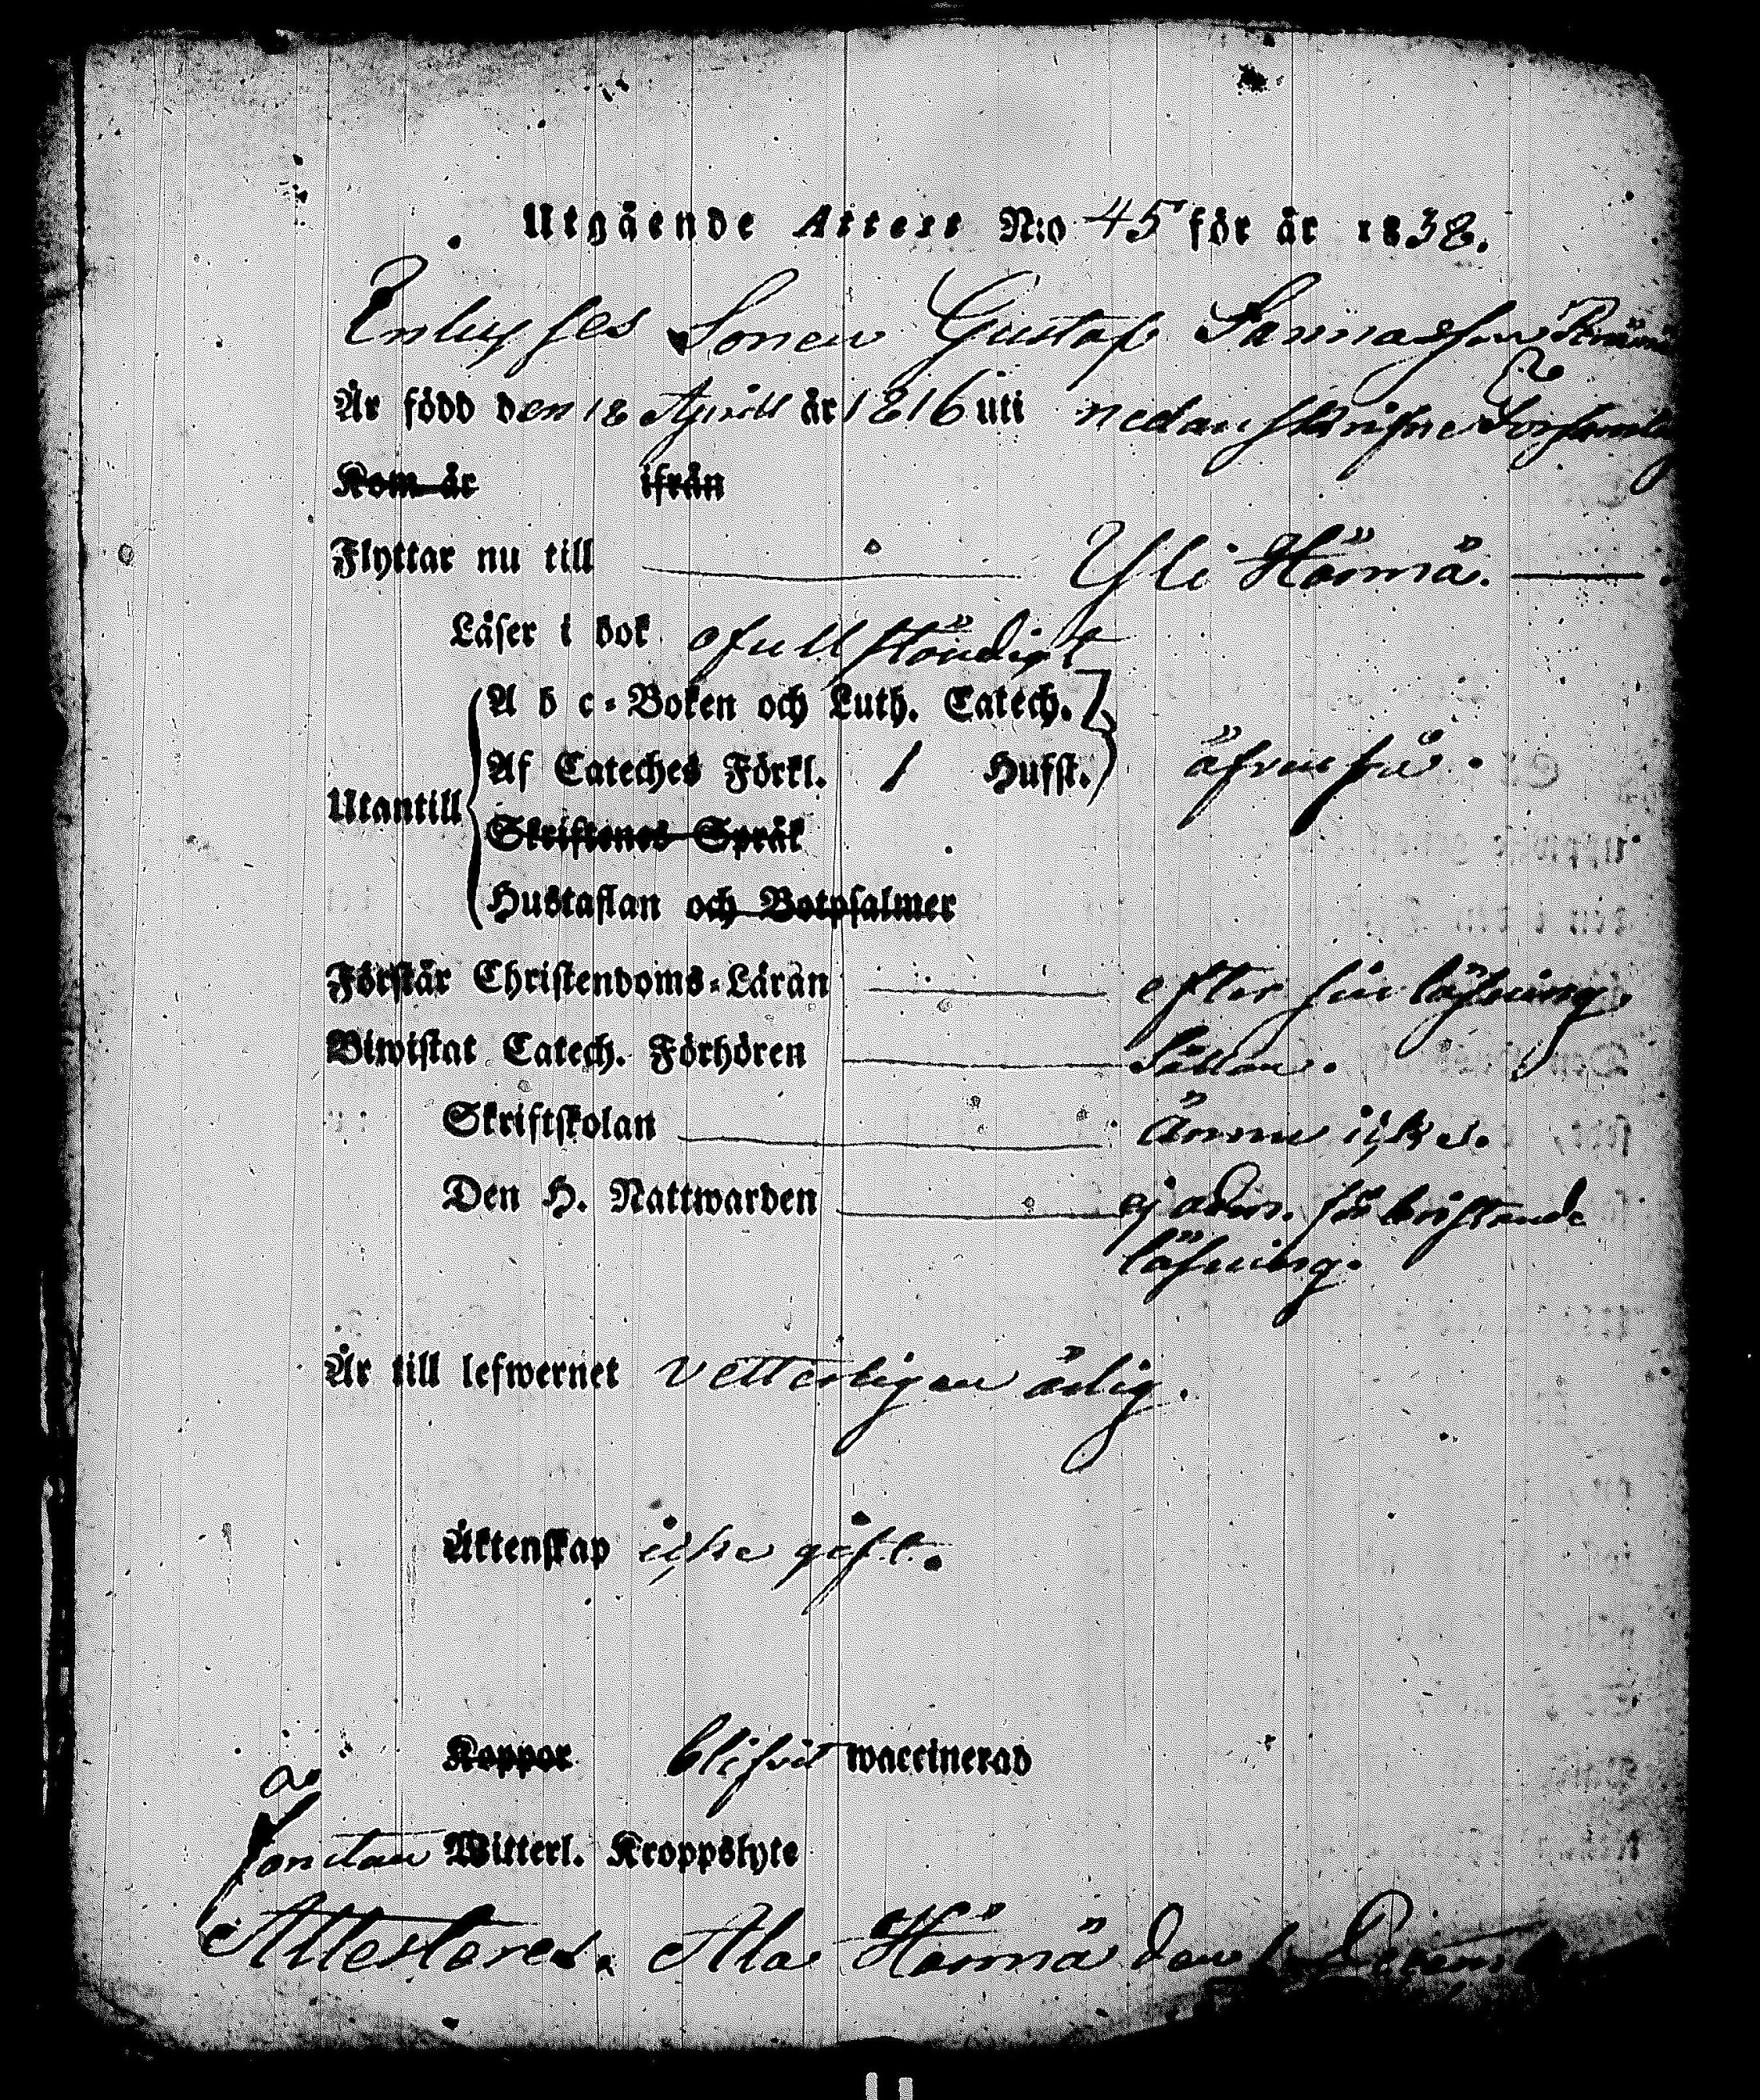 Utgående Attest N:o 45 för år 1838.
Enhysses Sonen Gustaf
År född den 18 April år 1816 uti nedanskrifne
Kom år ifrån
Flyttar nu till Yli Härmä.
Läser i bok ofullständigt
A b c-Boken och Luth. Catech.
Af Cateches Förkl. 1 Hufst. äfven så.
Utantill
Skriftenes Språk
Hustaflan och Botpsalmer
Förstår Christendoms-Läran efter sin läsning.
Biwistat Catech. Förhören Sällan.
Skriftskolan ännu icke.
Den H. Nattwarden ej adm. för bristande
läsning.
Är till lefwernet vetterligen ärlig.
Äktenskap icke gift.
Koppor blifvit waccinerad
Witterl. Kroppslyte
Attesteres. Ala Härmä den